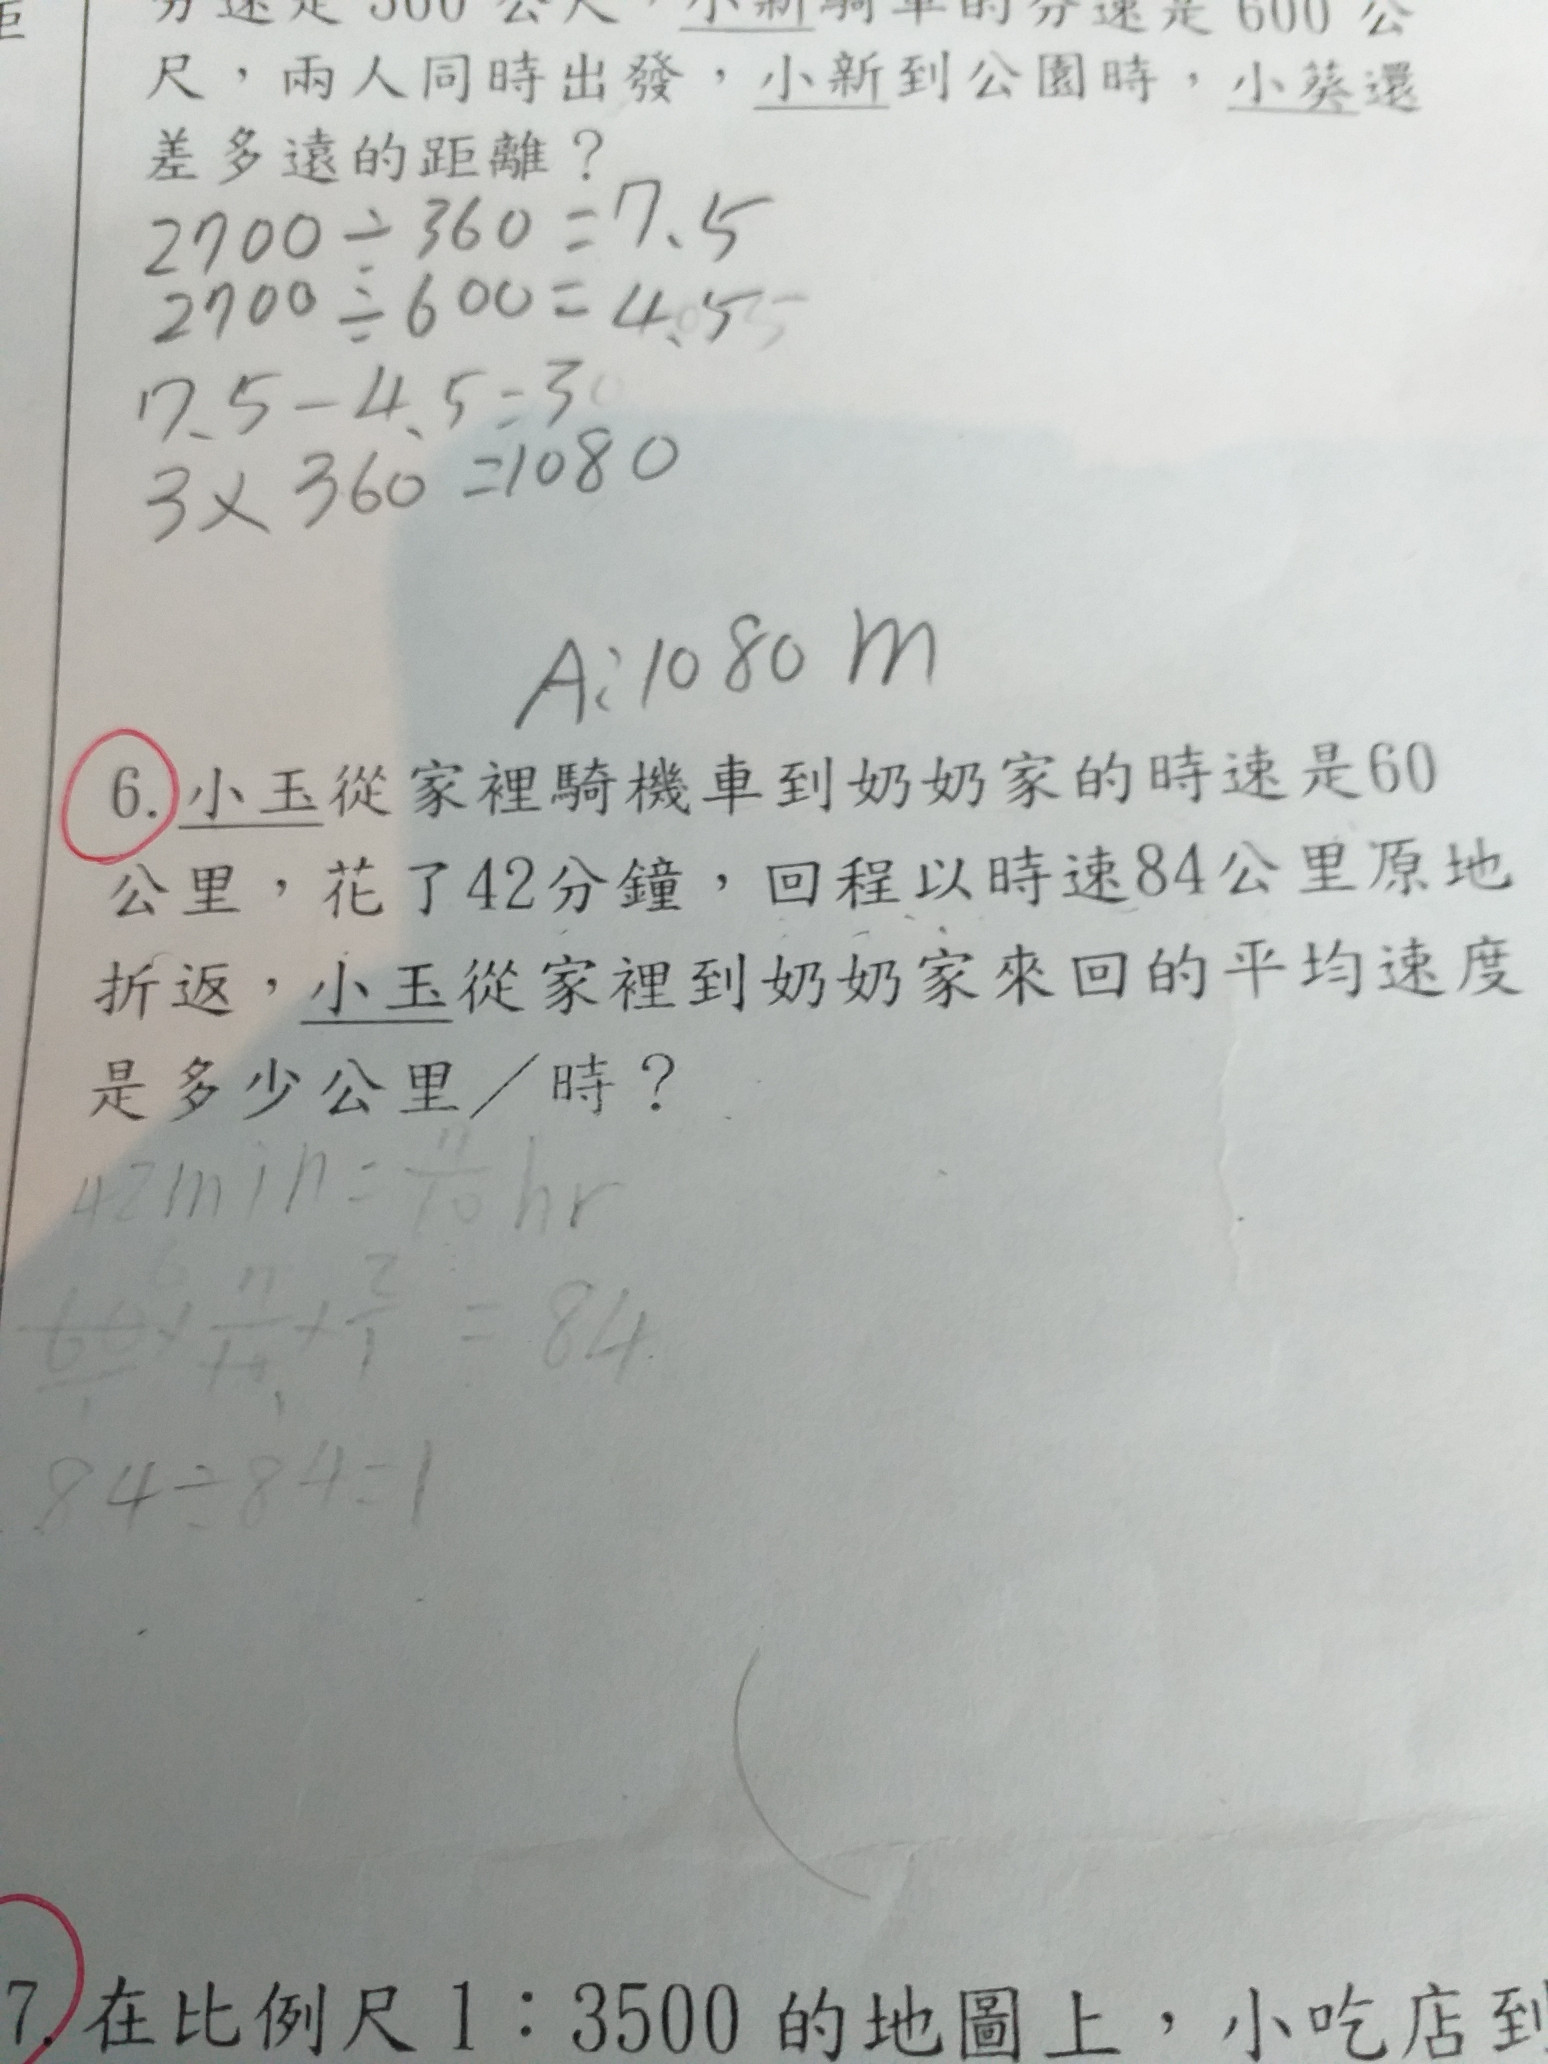 分速是 360 公尺，小新騎車的分速是 600 公
尺，兩人同時出發，小新到公園時，小葵還
差多遠的距離？
2700÷360=7.5
2700÷600=4.5
7.5-4.5=3
3×360=1080
A:1080m
6.小玉從家裡騎機車到奶奶家的時速是60
公里，花了42分鐘，回程以時速84公里原地
折返，小玉從家裡到奶奶家來回的平均速度
是多少公里／時？
42min=7/10 hr
60×7/10×2/1=84
84÷84=1
7.在比例尺1：3500 的地圖上，小吃店到